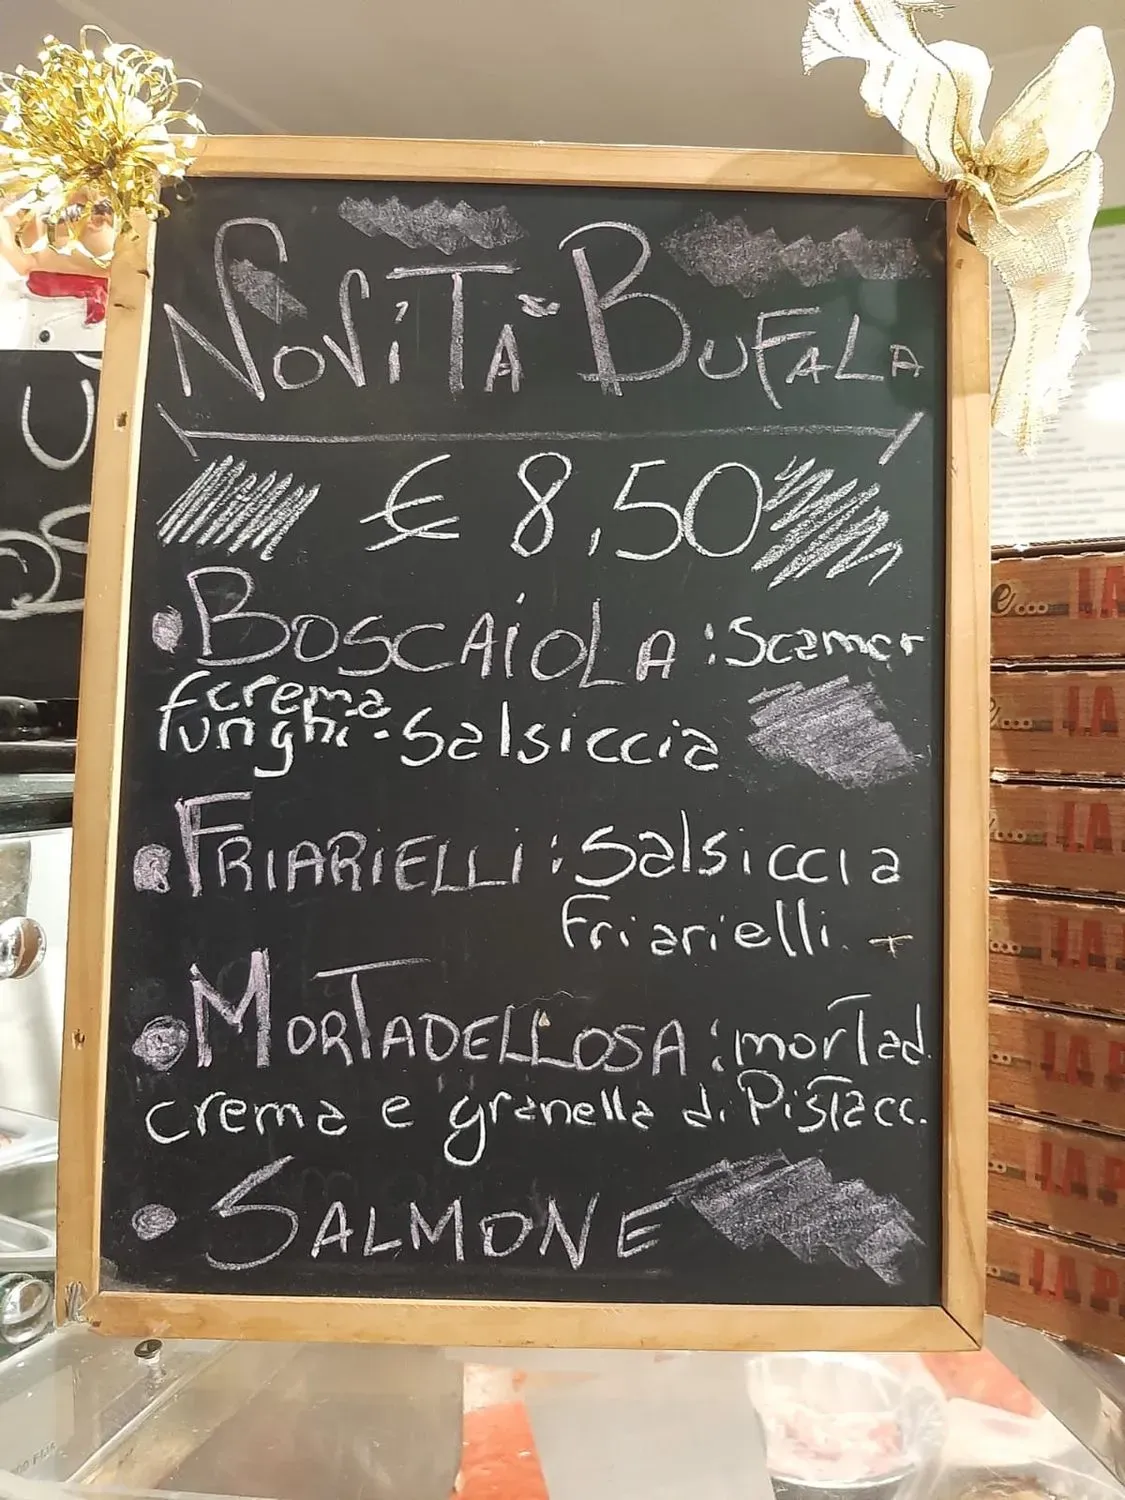 NOVITÀ BUFALA
€ 8,50
• BOSCAIOLA : Scamor
crema
funghi - Salsiccia
• FRIARIELLI : Salsiccia
Friarielli. +
• MORTADELLOSA : mortad.
crema e granella di Pistacc.
• SALMONE